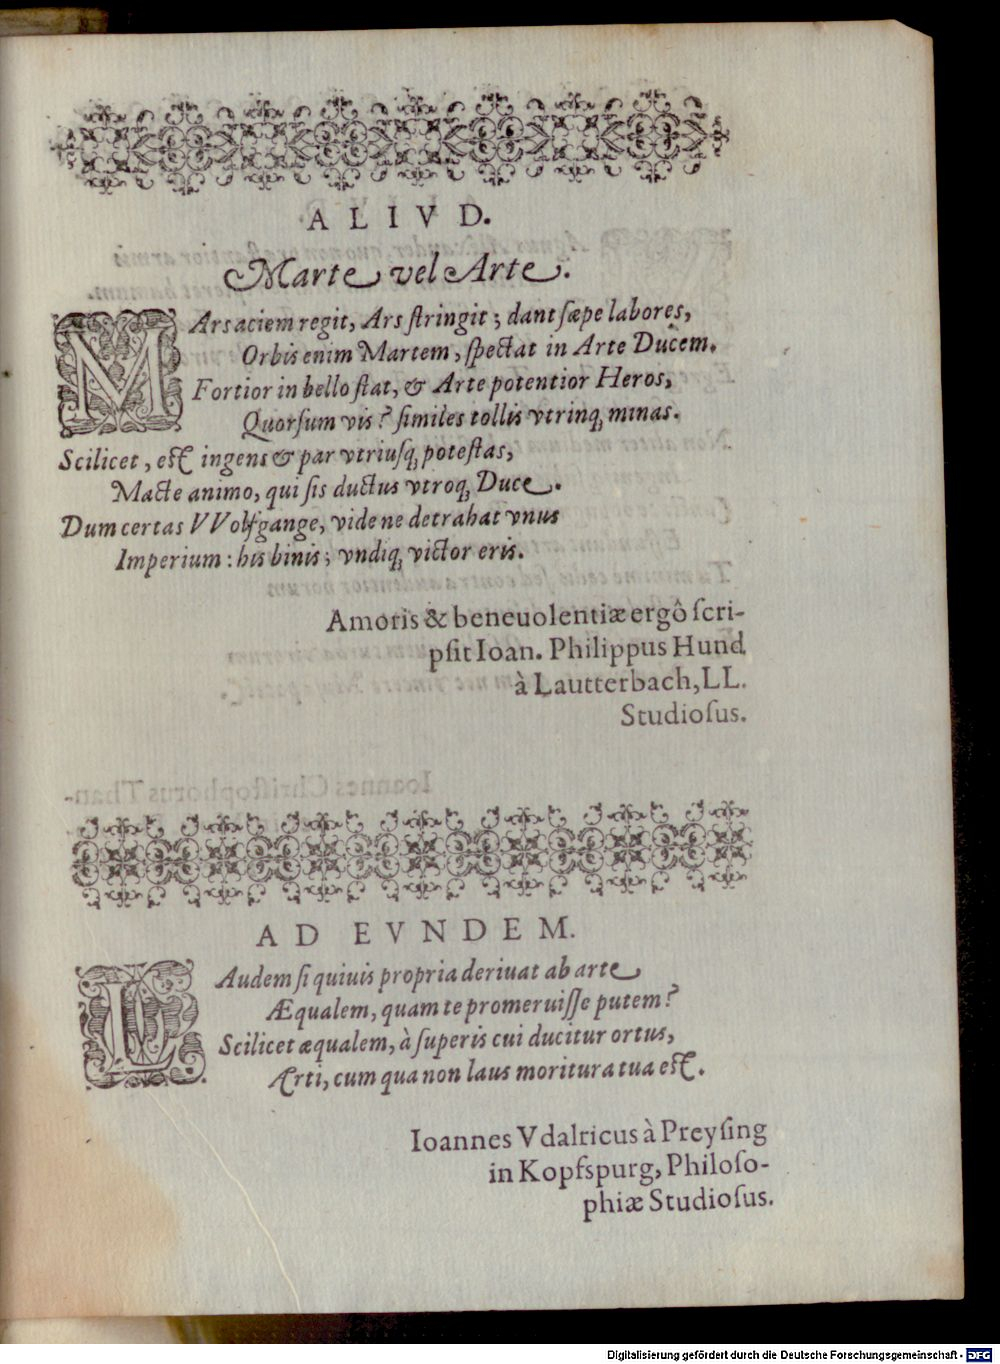 ALIVD.
Marte vel Arte.
MArs aciem regit, Ars stringit; dant sæpe labores,
Orbis enim Martem, spectat in Arte Ducem.
Fortior in bello stat, & Arte potentior Heros,
Quorsum vis? similes tollis vtrinq; minas.
Scilicet, est ingens & par vtriusq; potestas,
Macte animo, qui sis ductus vtroq; Duce.
Dum certas VVolfgange, vide ne detrahat vnus
Imperium: his binis; vndiq; victor eris.
Amoris & beneuolentiæ ergô scri-
psit Ioan. Philippus Hund
à Lautterbach, LL.
Studiosus.
AD EVNDEM.
LAudem si quiuis propria deriuat ab arte
Æqualem, quam te promeruisse putem?
Scilicet æqualem, à superis cui ducitur ortus,
Arti, cum qua non laus moritura tua est.
Ioannes Vdalricus à Preysing
in Kopfspurg, Philoso-
phiæ Studiosus.
Digitalisierung gefördert durch die Deutsche Forschungsgemeinschaft - DFG